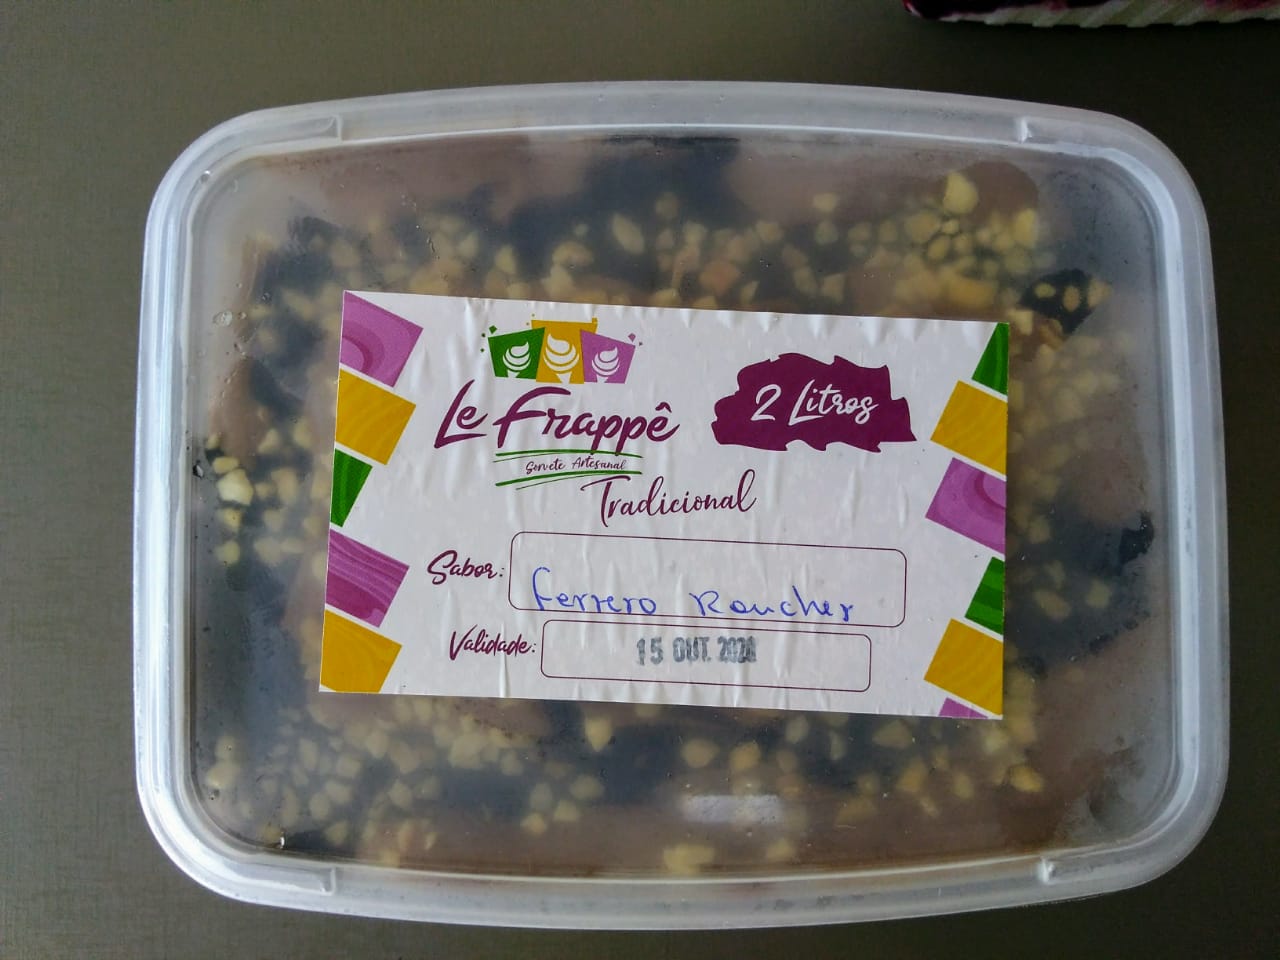 Le Frappê
Sorvete Artesanal
2 Litros
Tradicional
Sabor: Ferrero Roucher
Validade: 15 OUT. 2020